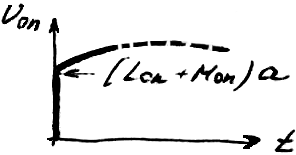 Uon
(Lcn + Mon) a
t